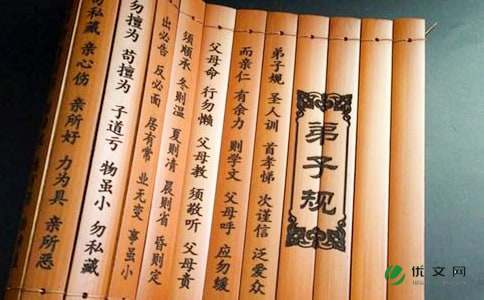 弟子规
弟子规 圣人训 首孝悌 次谨信 泛爱众
而亲仁 有余力 则学文 父母呼 应勿缓
父母命 行勿懒 父母教 须敬听 父母责
须顺承 冬则温 夏则清 晨则省 昏则定
出必告 反必面 居有常 业无变 事虽小
勿擅为 苟擅为 子道亏 物虽小 勿私藏
私藏 亲心伤 亲所好 力为具 亲所恶
优文网